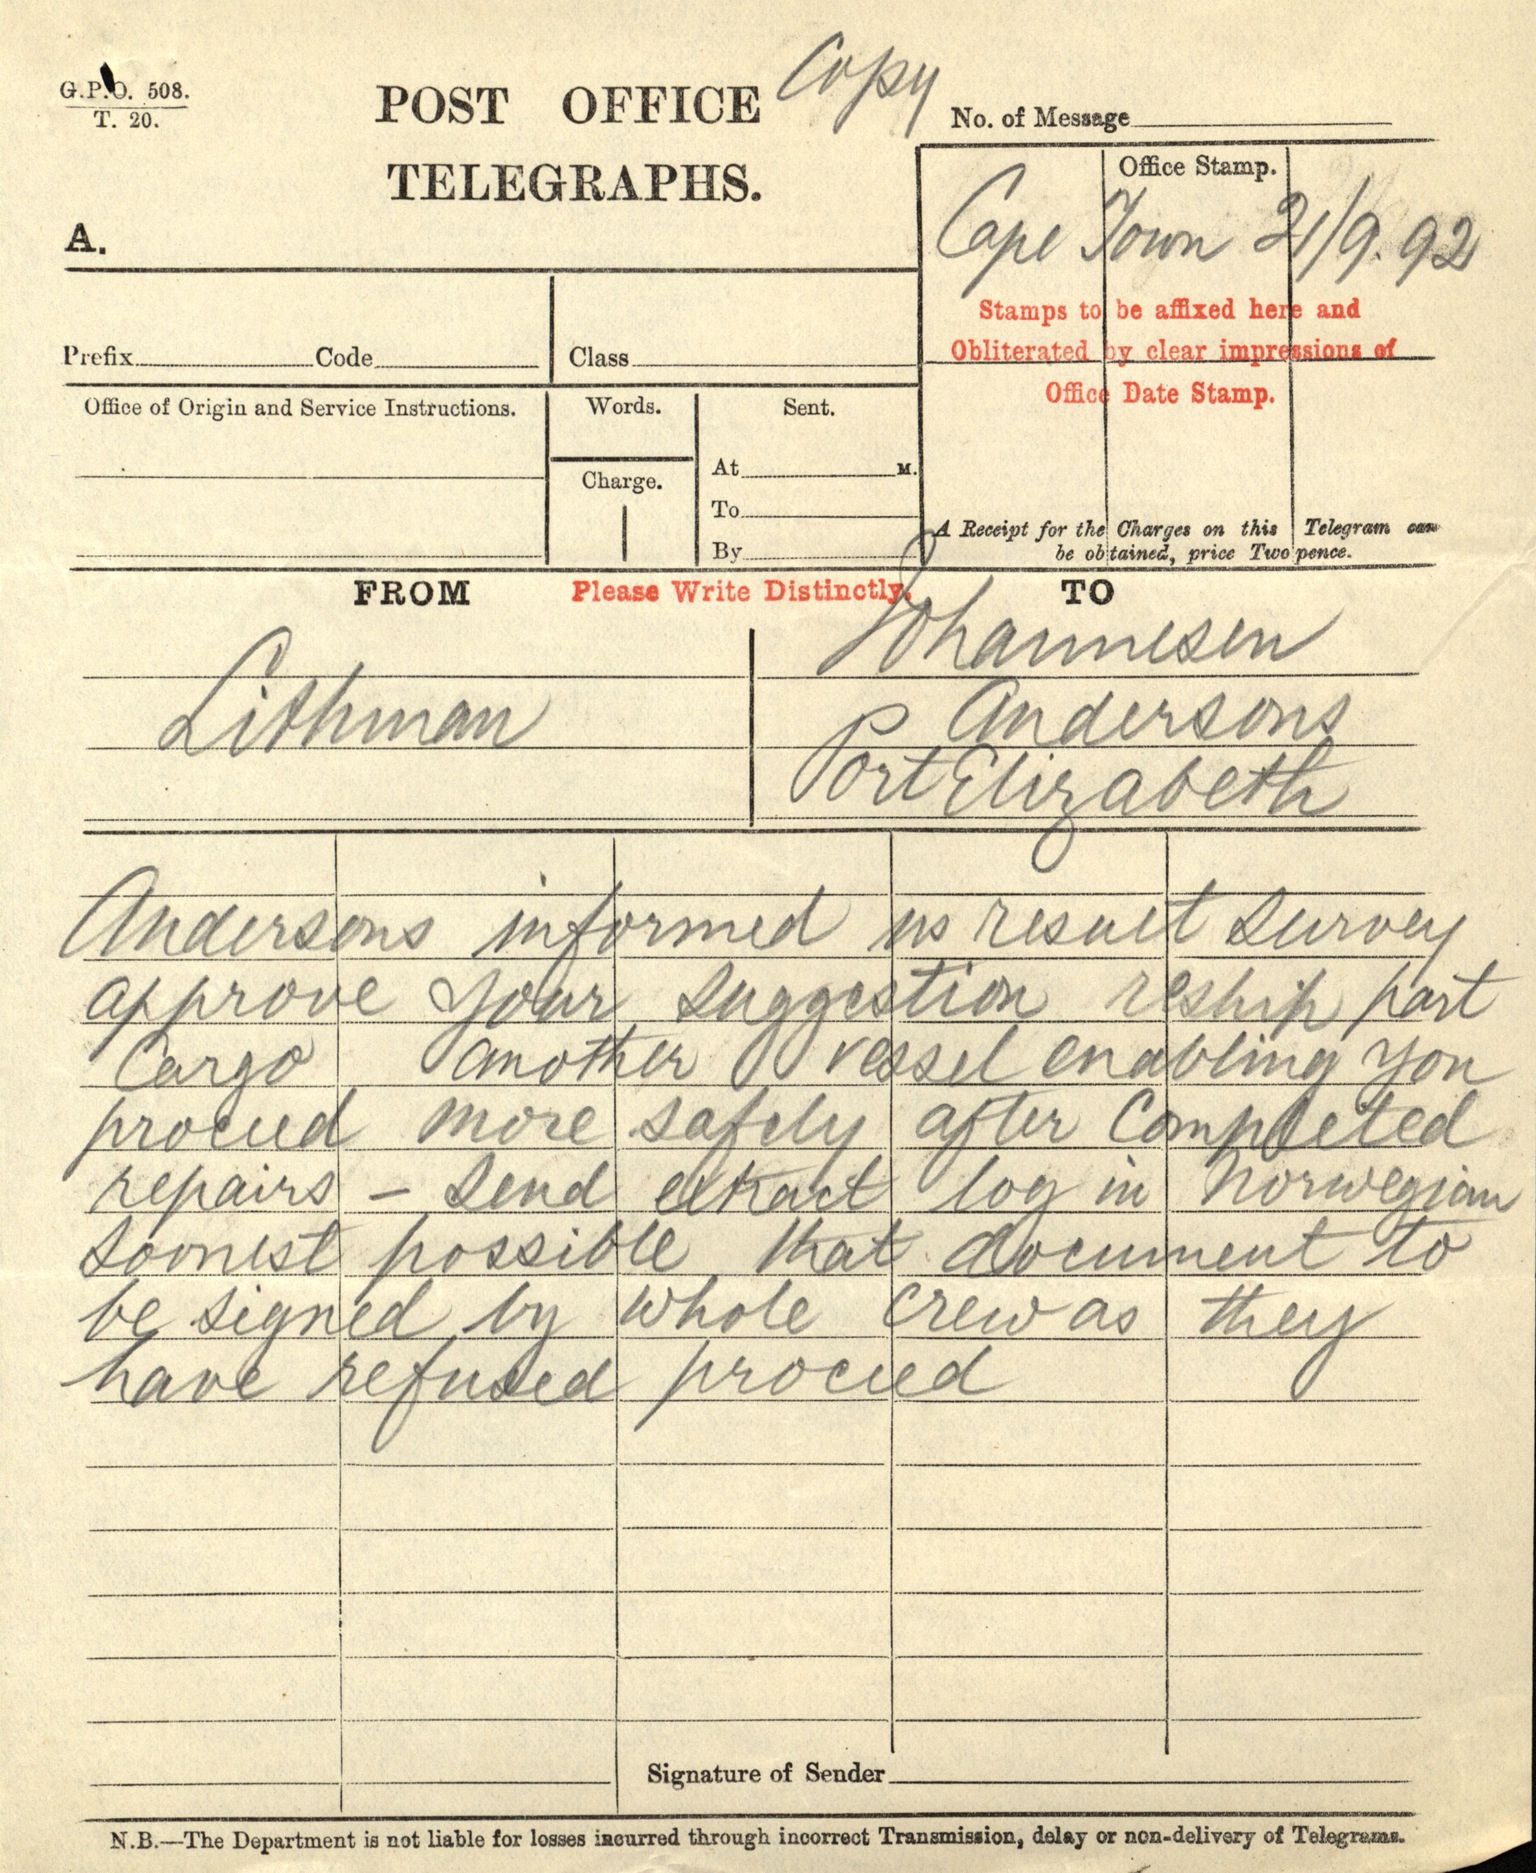 G.P.O. 508.
T. 20.
POST OFFICE
TELEGRAPHS.
Copy
No. of Message
A.
Office Stamp.
Cape Town 21/9. 92
Stamps to be affixed here and
Obliterated by clear impressions of
Office Date Stamp.
Prefix Code Class
Office of Origin and Service Instructions.
Words.
Charge.
Sent.
At M.
To
By
A Receipt for the Charges on this Telegram can
be obtained, price Twopence.
FROM Please Write Distinctly. TO
Lithman
Johannesen
Andersons
Port Elizabeth
Andersons informed us result survey
approve your suggestion reship part
Cargo another vessel enabling you
proceed more safely after Completed
repairs – Send extract log in Norwegian
soonest possible that document to
be signed by whole crew as they
have refused proceed
Signature of Sender
N.B.—The Department is not liable for losses incurred through incorrect Transmission, delay or non-delivery of Telegrams.